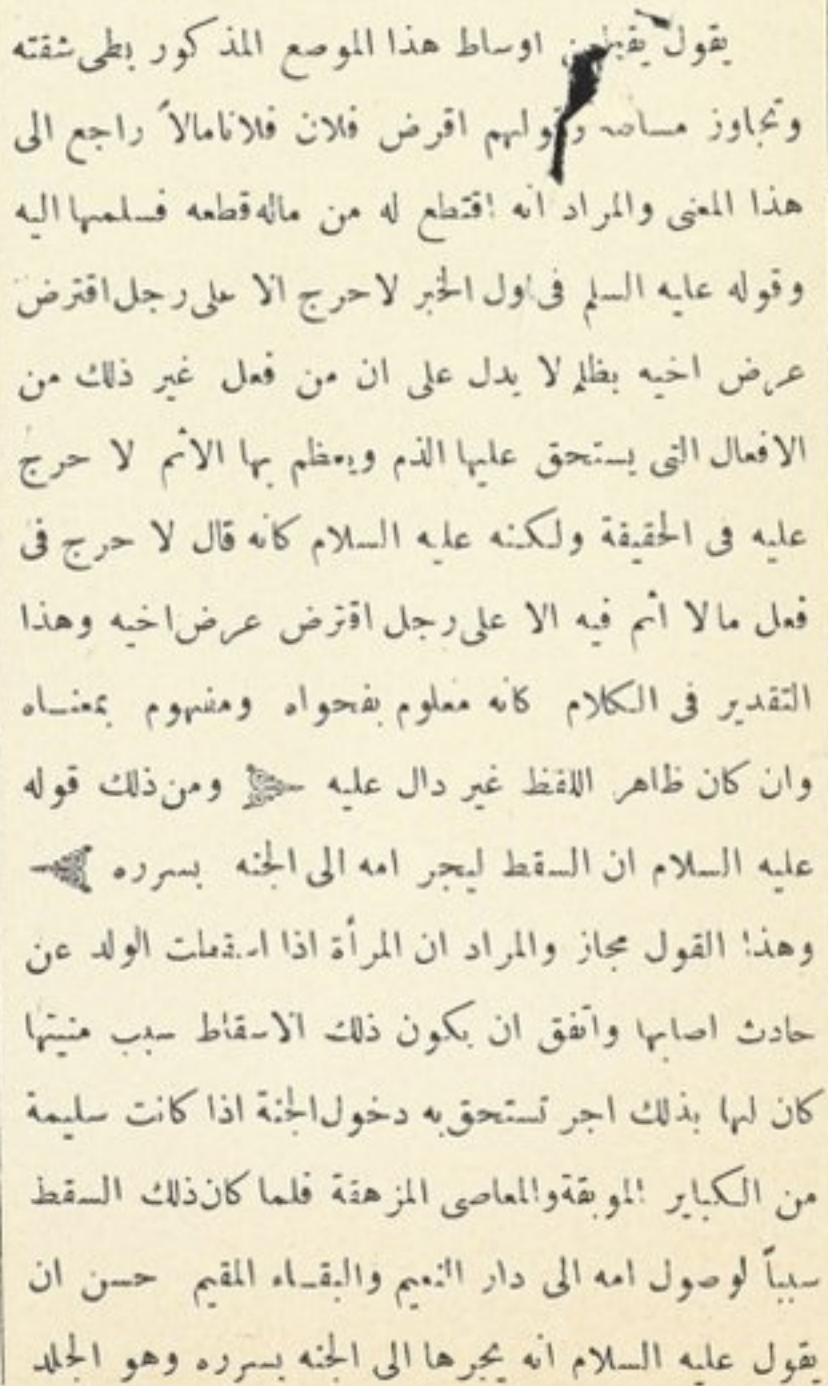 يقول يقطعن اوساط هذا الموضع المذكور بطى شقته
وتجاوز مسافته وقولهم اقرض فلان فلانا مالاً راجع الى
هذا المعنى والمراد انه اقتطع له من ماله قطعه فسلمها اليه
وقوله عليه السلم فى اول الخبر لا حرج الا على رجل اقترض
عرض اخيه بظلم لا يدل على ان من فعل غير ذلك من
الافعال التى يستحق عليها الذم ويعظم بها الأثم لا حرج
عليه فى الحقيقة ولكنه عليه السلام كانه قال لا حرج فى
فعل مالا أثم فيه الا على رجل اقترض عرض اخيه وهذا
التقدير فى الكلام كانه معلوم بفحواه ومفهوم بمعناه
وان كان ظاهر اللفظ غير دال عليه ومن ذلك قوله
عليه السلام ان السقط ليجر امه الى الجنه بسرره
وهذا القول مجاز والمراد ان المرأة اذا اسقطت الولد عن
حادث اصابها واتفق ان يكون ذلك الاسقاط سبب منيتها
كان لها بذلك اجر تستحق به دخول الجنة اذا كانت سليمة
من الكباير الموبقة والمعاصى المزهقة فلما كان ذلك السقط
سبباً لوصول امه الى دار النعيم والبقاء المقيم حسن ان
يقول عليه السلام انه يجرها الى الجنه بسرره وهو الجلد